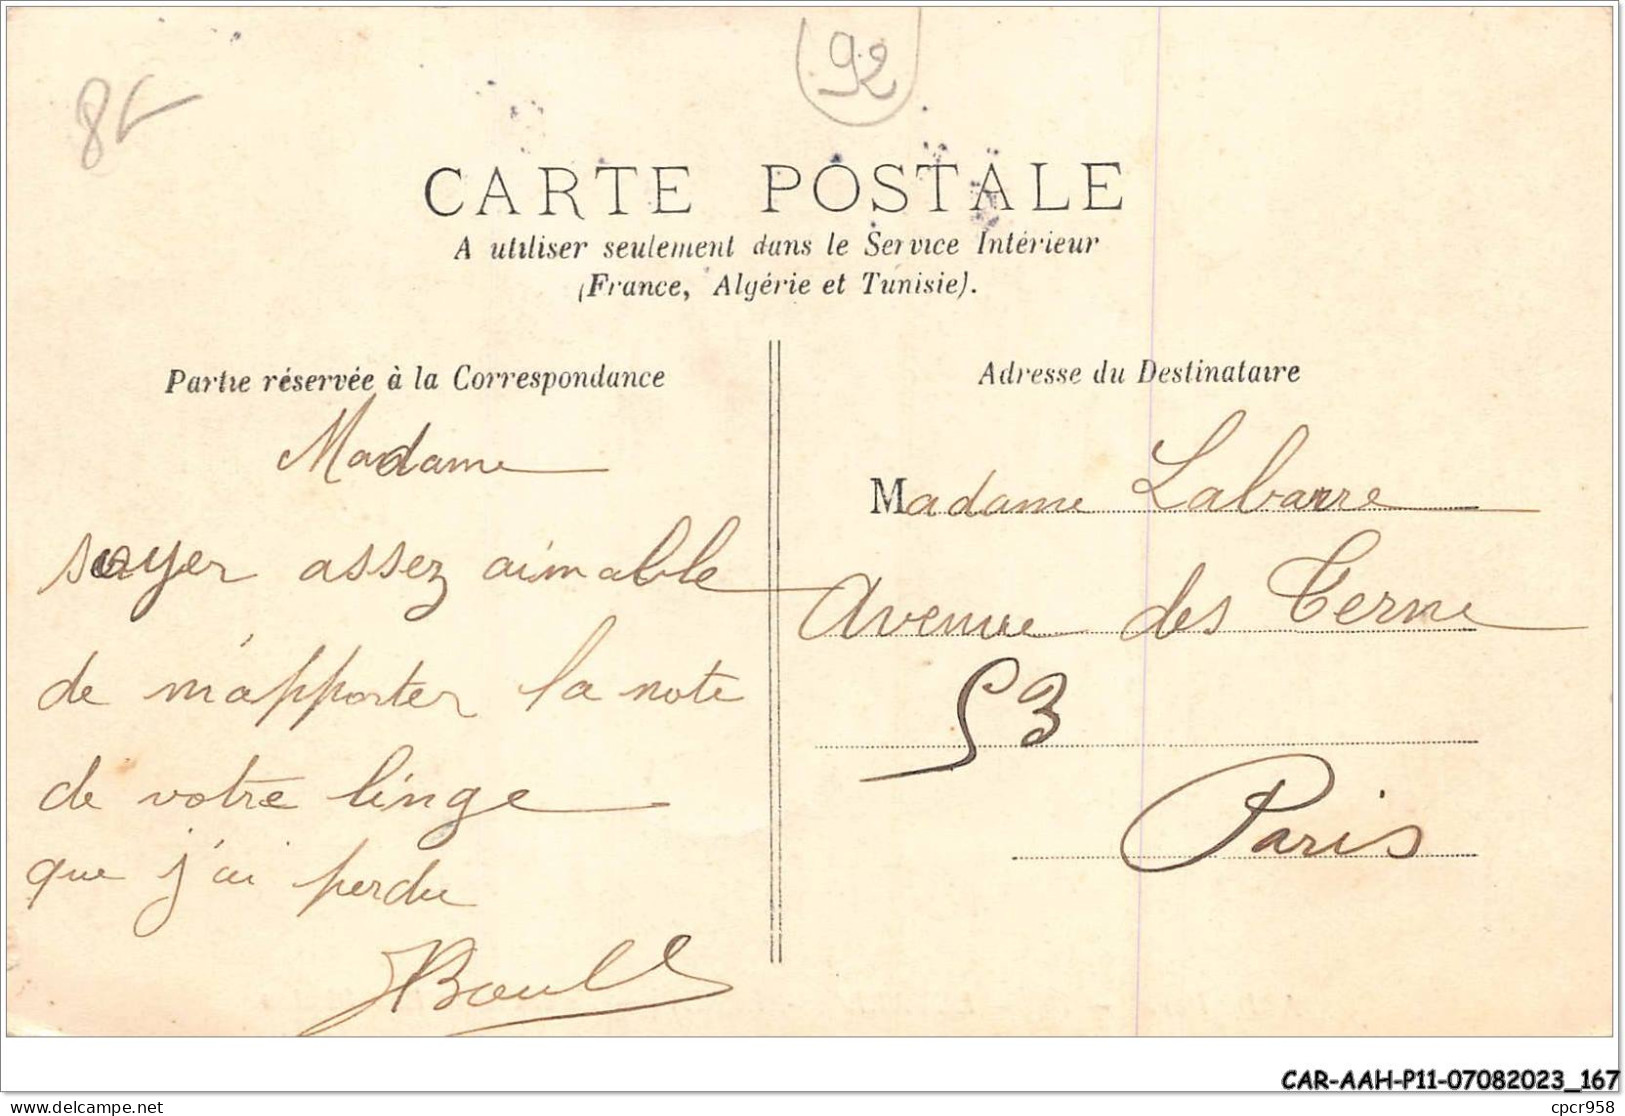 92
CARTE POSTALE
A utiliser seulement dans le Service Intérieur
(France, Algérie et Tunisie).
Partie réservée à la Correspondance
Madame
soyer assez aimable
de m'apporter la note
de votre linge
que j'ai perdu
Adresse du Destinataire
Madame Labarre
Avenue des Terne
53
Paris
CAR-AAH-P11-07082023_167
delcampe.net
cpcr958